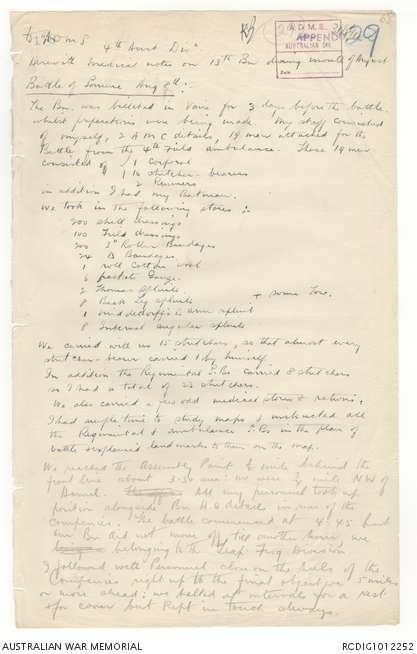 To A.D.M.S
4th Aust Divn
A.D.M.S.
APPEND
AUSTRALIAN DIV.
Date
29
Herewith medical notes on 13th Bn during month of August
Battle of Somme Aug 8th:-
The Bn. was billeted in Vaire for 3 days before the battle,
whilst preparations were being made. My staff consisted
of myself, 2 A M C details, 19 men attached for the
Battle from the 4th Field Ambulance. These 19 men
consisted of 1 Corporal
16 stretcher-bearers
2 Runners
in addition I had my Batman.
We took in the following stores:-
200 shell dressings
100 Field dressings
200 3" Roller Bandages
24 B Bandages
1 roll Cotton wool
6 packets Gauze
2 Thomas splints
8 Back Leg splints + some Tow.
1 middeldorpf's arm splint
8 Internal angular splints
We carried with us 15 stretchers, so that almost every
stretcher-bearer carried 1 by himself.
In addition the Regimental S.Bs carried 8 stretchers
so I had a total of 23 stretchers.
We also carried a few odd medical stores & rations.
I had ample time to study maps & instructed all
the Regimental & ambulance S.Bs in the plan of
battle & explained landmarks to them on the map.
We reached the Assembly Point 2 miles behind the
front line about 3-30 am: we were ½ mile NW of
Hamel. All my personnel took up
position alongside Bn H.Q details in rear of the
companies. The battle commenced at 4.45 but
our Bn did not move off till another hour, we
belonging to the Leap Frog Division
I followed with Personnel close on the heels of the
Companies right up to the final objective 5 miles
or more ahead; we halted at intervals for a rest
& for cover but kept in touch always.
AUSTRALIAN WAR MEMORIAL
RCDIG1012252